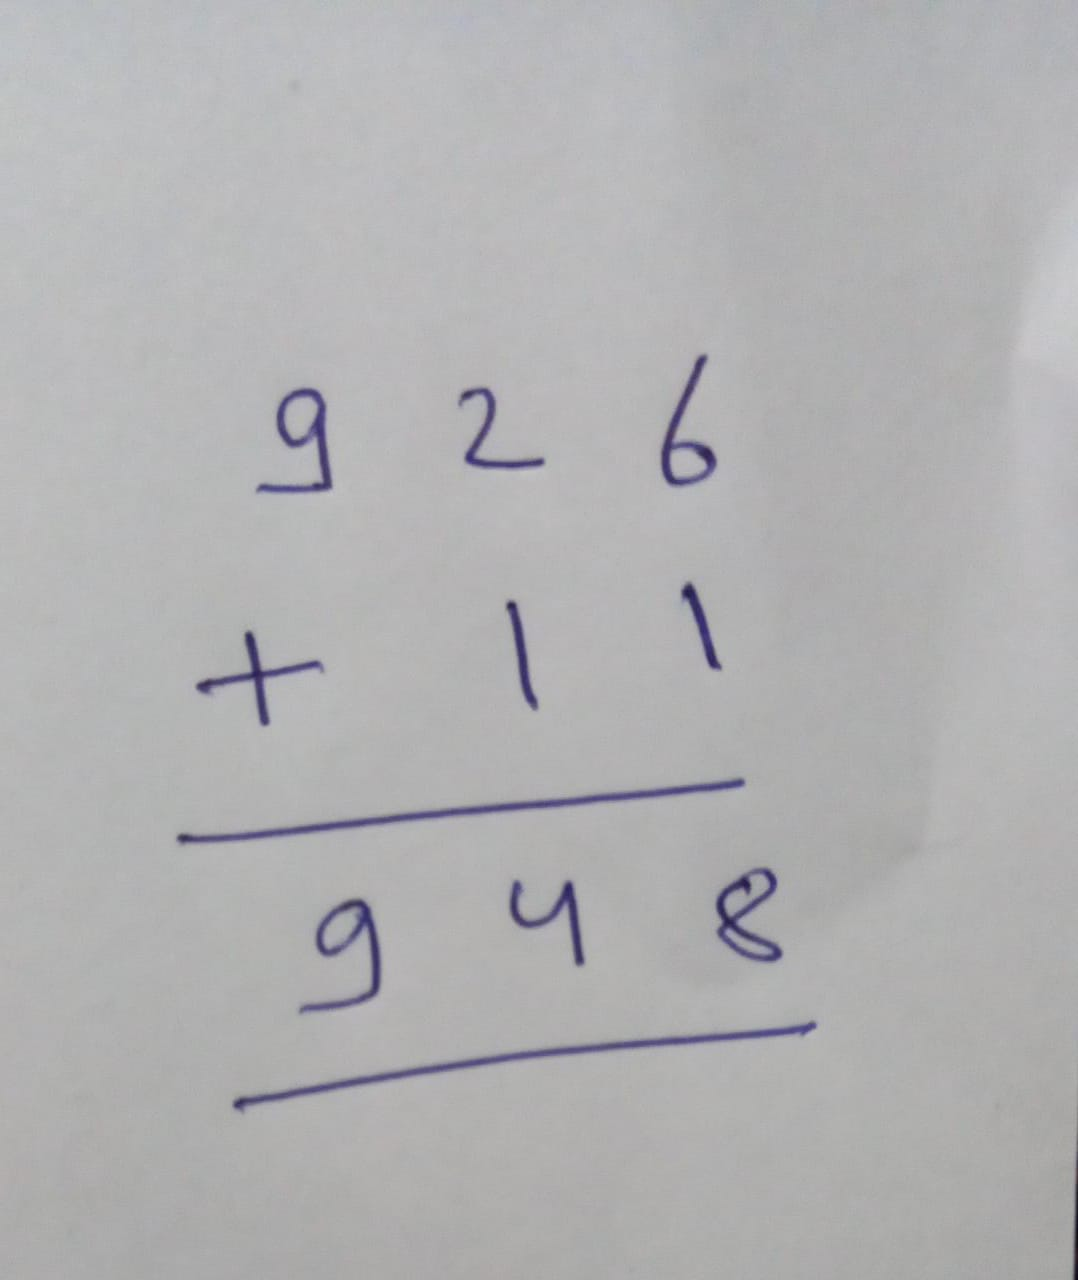 9 2 6
+ 1 1
9 4 8